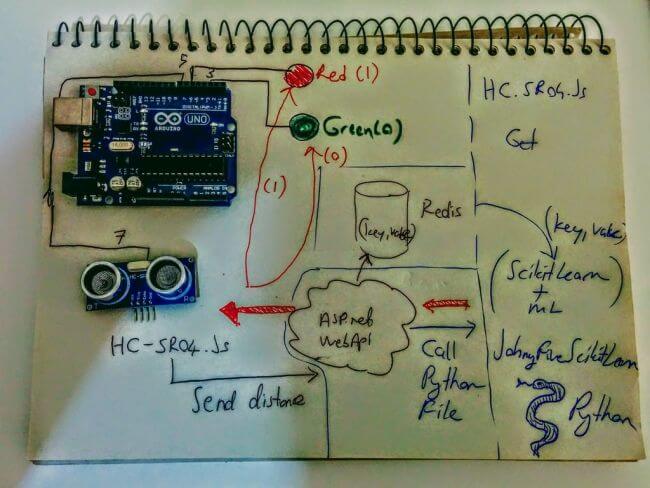 5
3
Red (1)
HC.SR04.Js
Green(0)
Get
(0)
(1)
ARDUINO
UNO
Redis
(key,value)
(key,value)
7
(ScikitLearn
+
ML)
ASP.net
WebApi
HC-SR04.Js
Call
Python
File
JohnyFiveScikitLearn
Send distance
Python